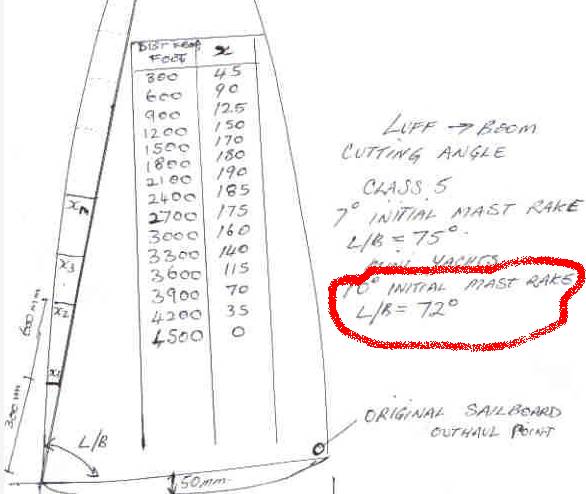 DIST FROM FOOT x
300 45
600 90
900 125
1200 150
1500 170
1800 180
2100 190
2400 185
2700 175
3000 160
3300 140
3600 115
3900 70
4200 35
4500 0
LUFF → BEOM
CUTTING ANGLE
CLASS 5
7° INITIAL MAST RAKE
L/B = 75°
MINI YACHTS
10° INITIAL MAST RAKE
L/B = 72°
ORIGINAL SAILBOARD
OUTHAUL POINT
X3
X2
X1
600 mm
300 mm
L/B
50mm